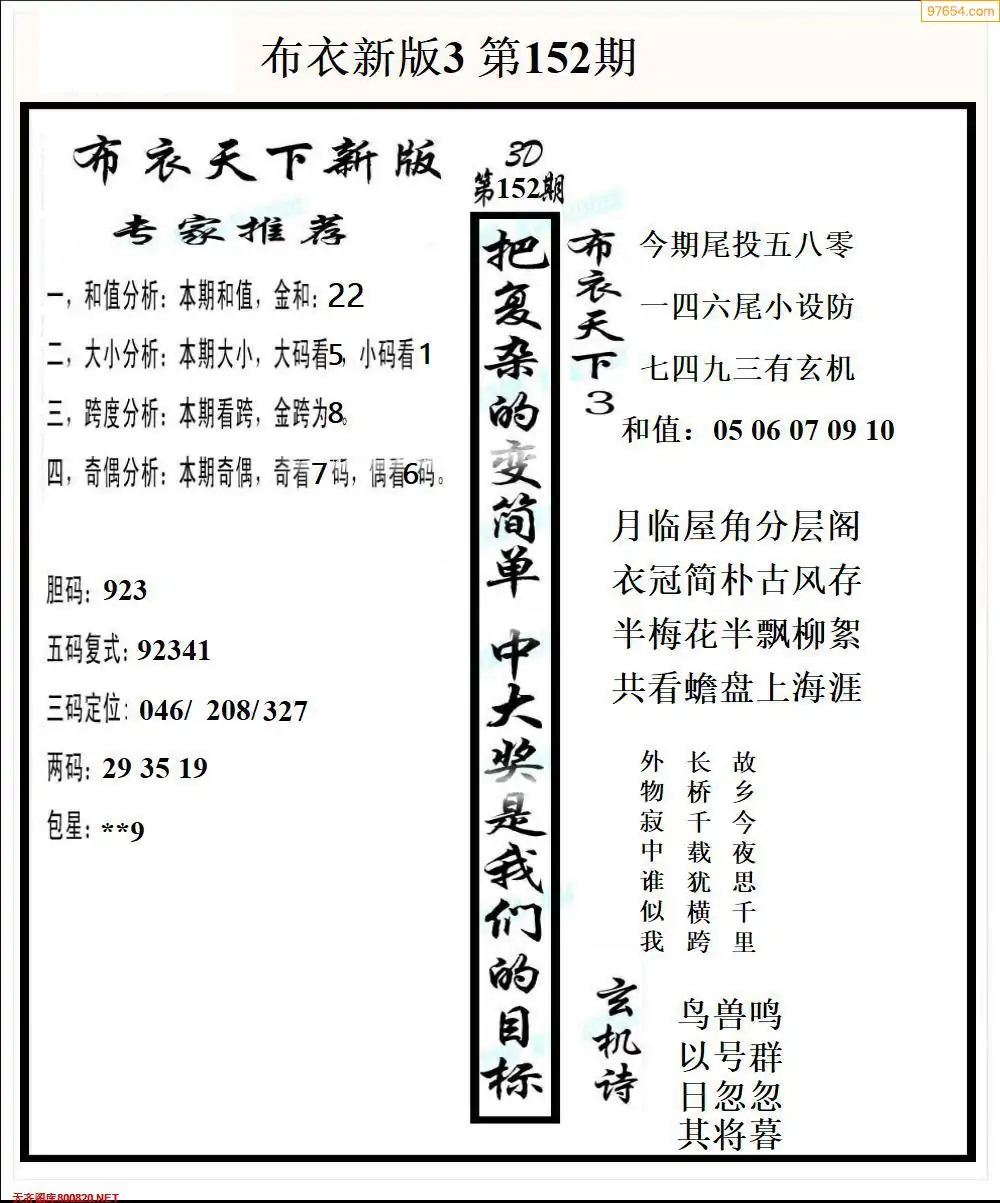 97654.com
布衣新版3 第152期
布衣天下新版
专家推荐
一，和值分析：本期和值，金和：22
二，大小分析：本期大小，大码看5，小码看1
三，跨度分析：本期看跨，金跨为8。
四，奇偶分析：本期奇偶，奇看7码，偶看6码。
胆码：923
五码复式：92341
三码定位：046/ 208/327
两码：29 35 19
包星：**9
3D
第152期
把复杂的变简单 中大奖是我们的目标
布衣天下3
今期尾投五八零
一四六尾小设防
七四九三有玄机
和值：05 06 07 09 10
月临屋角分层阁
衣冠简朴古风存
半梅花半飘柳絮
共看蟾盘上海涯
故乡今夜思千里
长桥千载犹横跨
外物寂中谁似我
玄机诗
鸟兽鸣
以号群
日忽忽
其将暮
天齐图库800820.NET